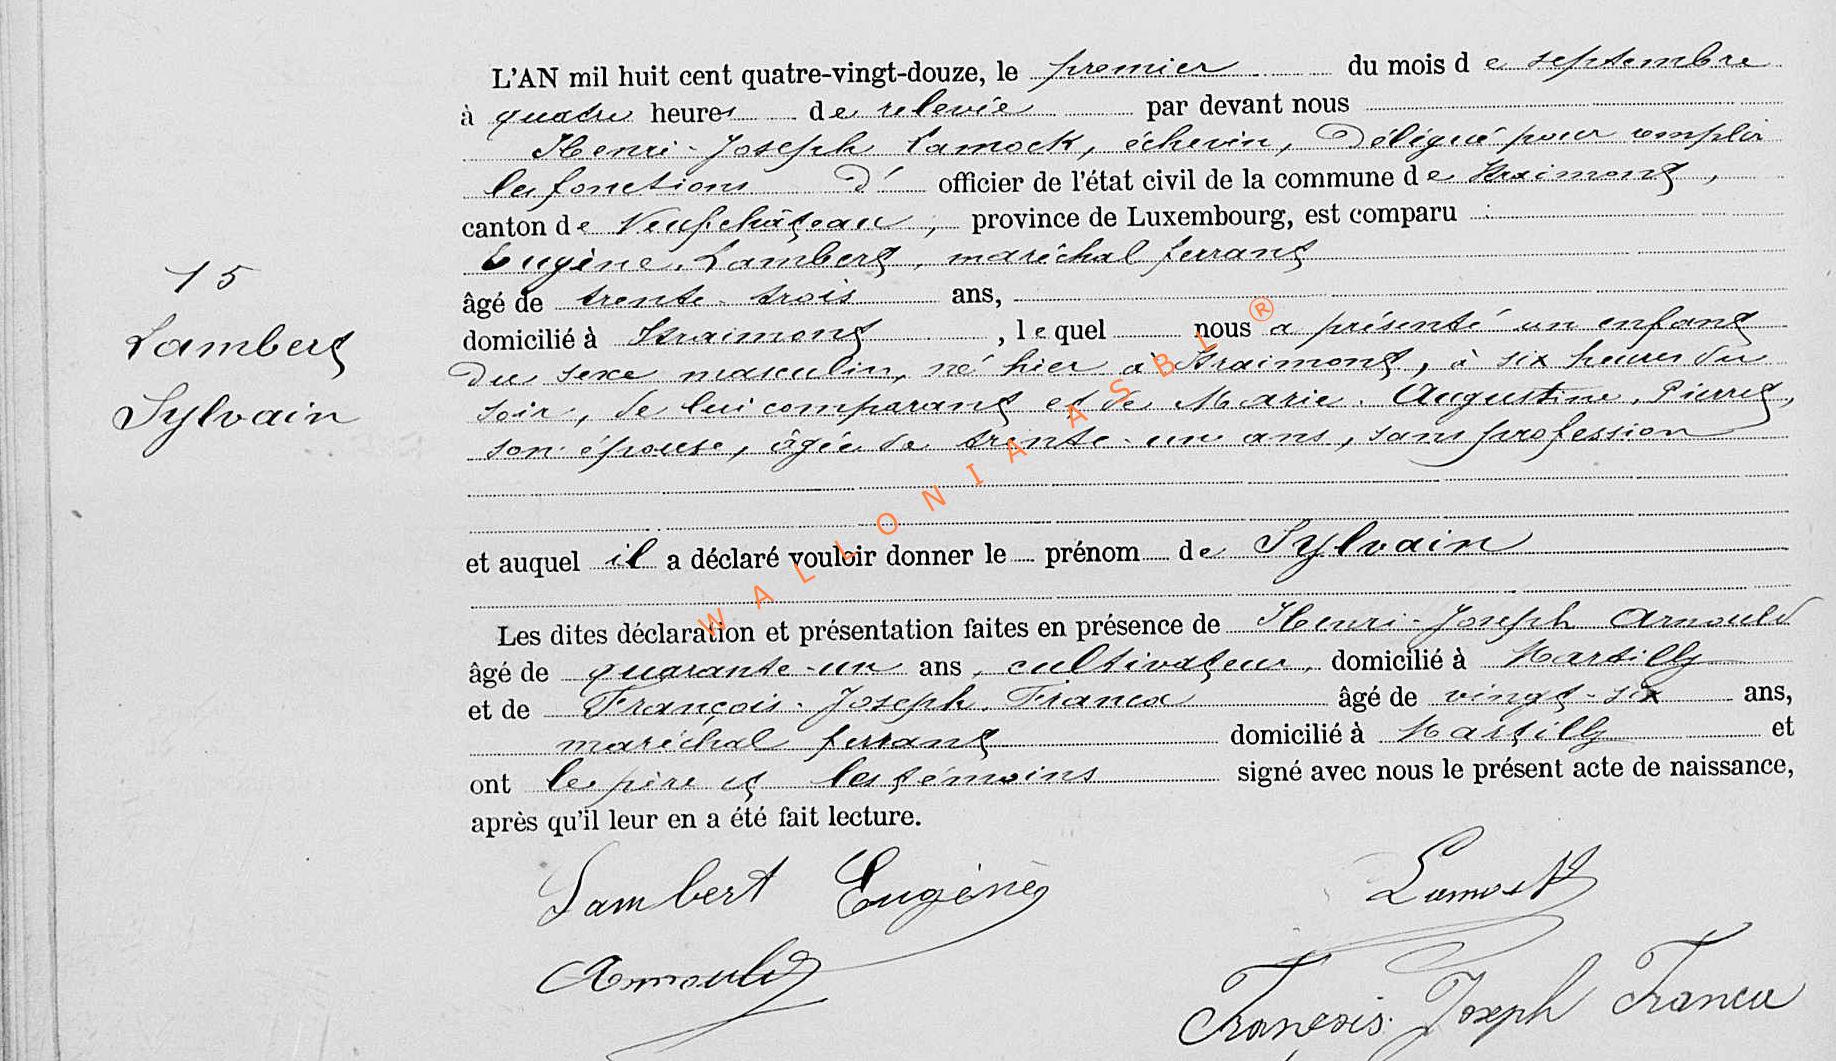 L'AN mil huit cent quatre-vingt-douze, le premier du mois de septembre
à quatre heures de relevée par devant nous
Henri-Joseph Lamock, échevin, Délégué pour remplir
les fonctions d' officier de l'état civil de la commune de Straimont,
canton de Neufchâteau, province de Luxembourg, est comparu :
Eugène Lambert, maréchal ferrant
âgé de trente-trois ans,
domicilié à Straimont, lequel nous a présenté un enfant
du sexe masculin, né hier à Straimont, à six heures du
soir, de lui comparant et de Marie-Augustine Pierret,
son épouse, âgée de trente-un ans, sans profession
et auquel il a déclaré vouloir donner le prénom de Sylvain
Les dites déclaration et présentation faites en présence de Henri-Joseph Arnould
âgé de quarante-un ans, cultivateur, domicilié à Martilly
et de François-Joseph Franca âgé de vingt-six ans,
maréchal ferrant domicilié à Martilly et
ont le père et les témoins signé avec nous le présent acte de naissance,
après qu'il leur en a été fait lecture.
15
Lambert
Sylvain
Lambert Eugène
Lamock
Arnould
François Joseph Franca
WALLONIA ASBL ®